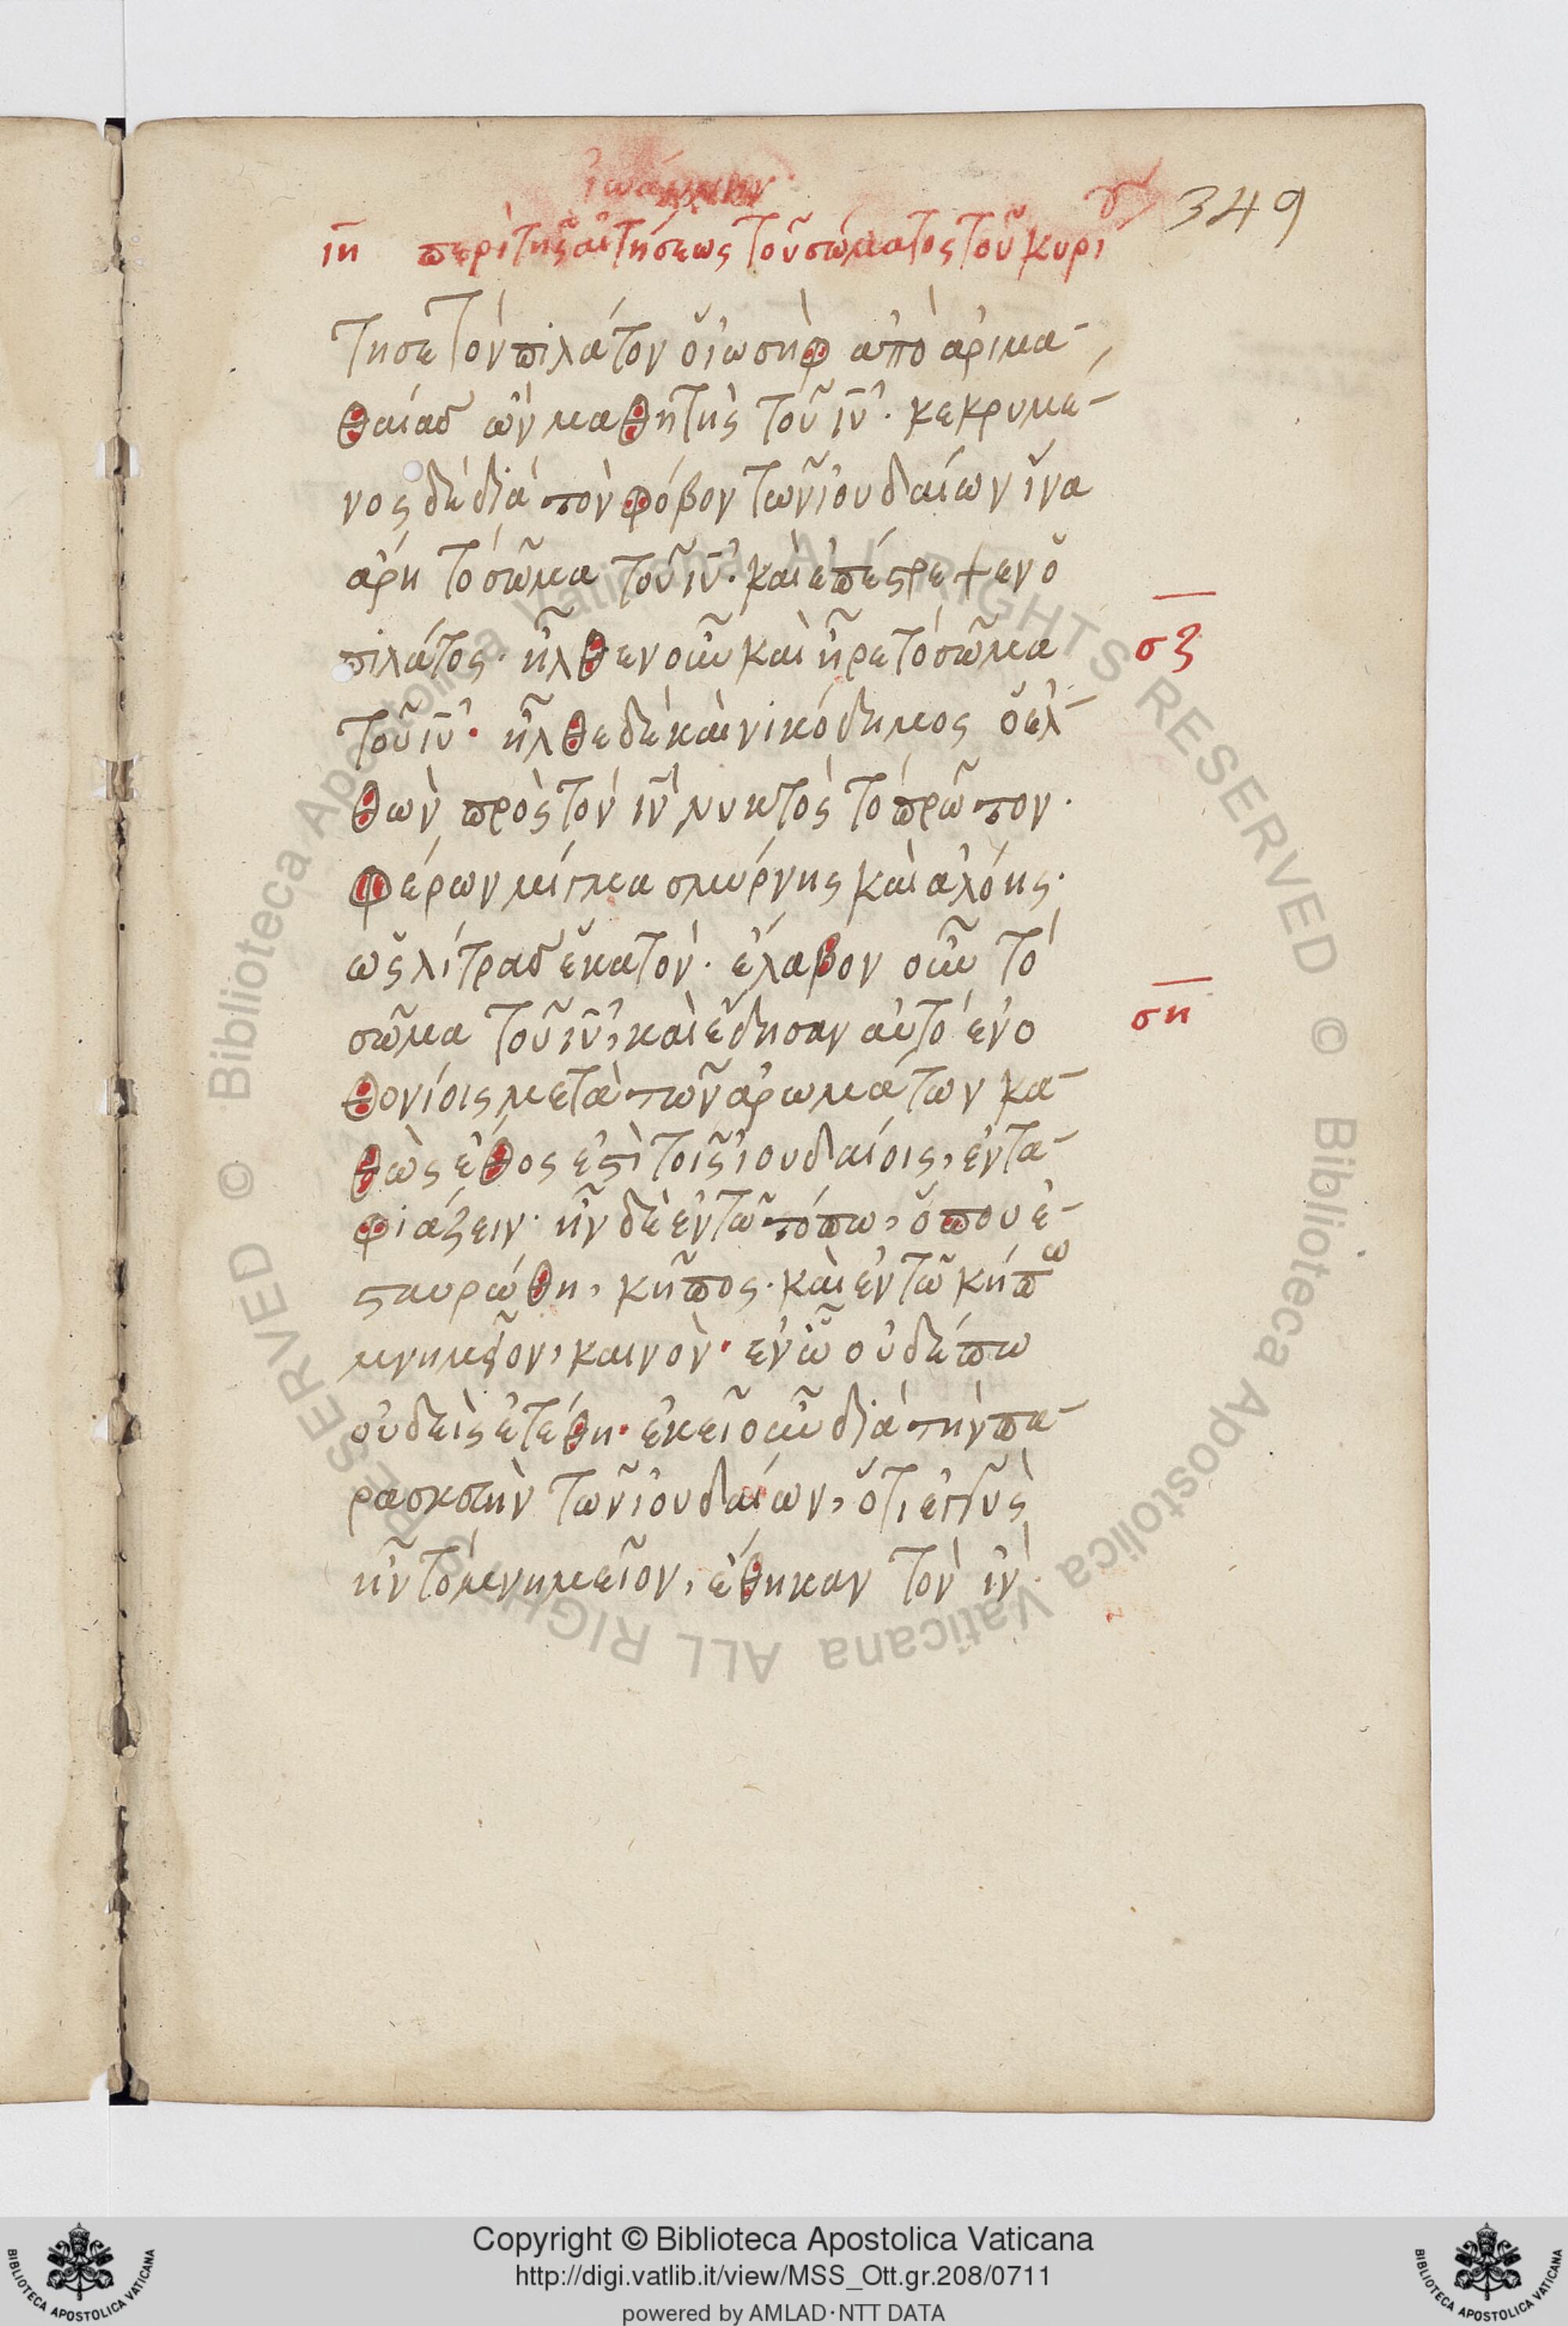 ἰωάννην
349
ιη περὶ τῆς αἰτήσεως τοῦ σώματος τοῦ κυρί
τησε τὸν πιλάτον ὁ ἰωσὴφ ἀπὸ ἀριμα-
θαίας ὢν μαθητὴς τοῦ ιυ. κεκρυμέ-
νος δὲ διὰ τὸν φόβον τῶν ἰουδαίων ἵνα
ἄρη τὸ σῶμα τοῦ ιυ. καὶ ἐπέστρεψεν ὁ
πιλάτος. ἦλθεν οὖν καὶ ἦρε τὸ σῶμα
σζ
τοῦ ιυ. ἦλθε δὲ καὶ νικόδημος ὁ ἐλ-
θὼν πρὸς τὸν ιν νυκτὸς τὸ πρῶτον.
φέρων μίγμα σμύρνης καὶ ἀλόης.
ὡς λίτρας ἑκατόν. ἔλαβον οὖν τὸ
σῶμα τοῦ ιυ, καὶ ἔδησαν αὐτὸ ἐν ὀ
ση
θονίοις μετὰ τῶν ἀρωμάτων κα-
θὼς ἔθος ἐστὶ τοῖς ἰουδαίοις, ἐντα-
φιάζειν. ἦν δὲ ἐν τῶ τόπω, ὅπου ἐ-
σταυρώθη, κῆπος. καὶ ἐν τῶ κήπω
μνημεῖον, καινόν. ἐν ὧ οὐδέπω
οὐδεὶς ἐτέθη. ἐκεῖ οὖν διὰ τὴν πα-
ρασκευὴν τῶν ἰουδαίων, ὅτι ἐγγὺς
ἦν τὸ μνημεῖον, ἔθηκαν τὸν ιν.
Copyright © Biblioteca Apostolica Vaticana
http://digi.vatlib.it/view/MSS_Ott.gr.208/0711
powered by AMLAD·NTT DATA
BIBLIOTECA APOSTOLICA VATICANA
BIBLIOTECA APOSTOLICA VATICANA
© Biblioteca Apostolica Vaticana ALL RIGHTS RESERVED © Biblioteca Apostolica Vaticana ALL RIGHTS RESERVED